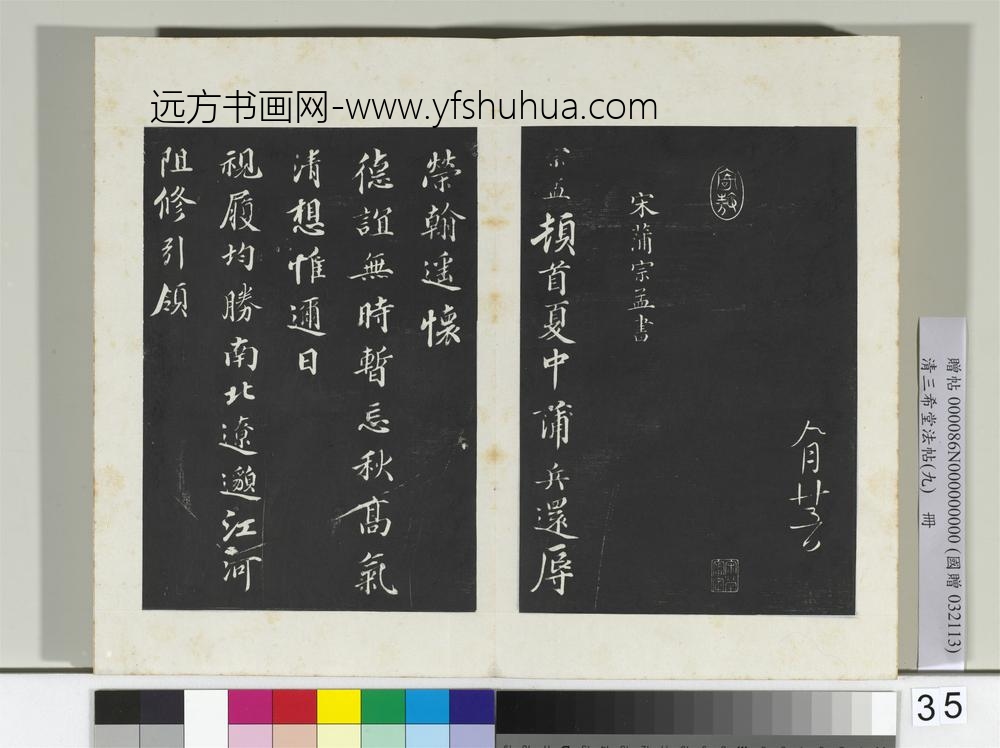 远方书画网-www.yfshuhua.com
八月廿五日
宋蒲宗孟書
宗孟頓首夏中蒲兵還辱
榮翰遥懷
德誼無時暫忘秋高氣
清想惟邇日
視履均勝南北遼邈江河
阻修引領
贈帖 000086N000000000 (國贈 032113)
清三希堂法帖(九) 冊
35